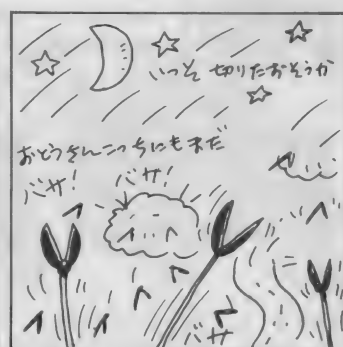 いっそ 切りたおそうか
おとうさんこっちにもまだ
バサ!
バサ!
バサ